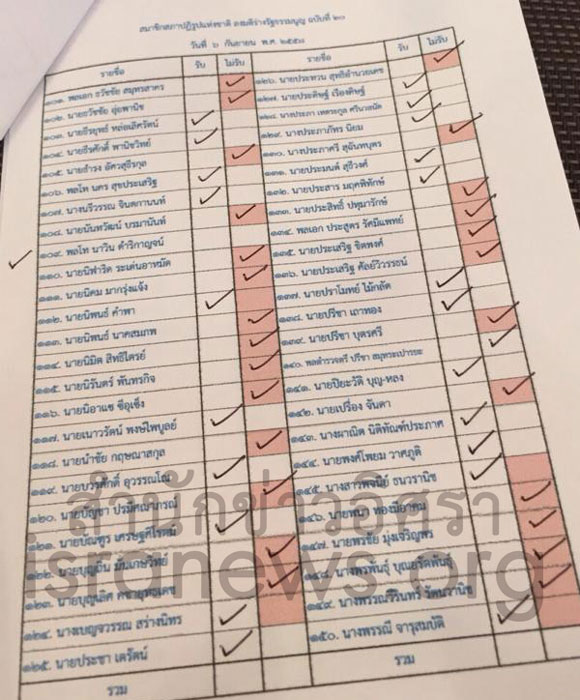 สมาชิกสภาปฏิรูปแห่งชาติ ลงมติร่างรัฐธรรมนูญ ฉบับที่ ๒๐
วันที่ ๖ กันยายน พ.ศ. ๒๕๕๘
รายชื่อ รับ ไม่รับ
๑๐๑. พลเอก ธวัชชัย สมุทรสาคร
๑๐๒. นายธวัชชัย อุ่ยพานิช
๑๐๓. นายธีรยุทธ์ หล่อเลิศรัตน์
๑๐๔. นายธีรศักดิ์ พานิชวิทย์
๑๐๕. นายธำรง อัศวสุธีรกุล
๑๐๖. พลโท นคร สุขประเสริฐ
๑๐๗. นางนรีวรรณ จินตกานนท์
๑๐๘. นายนันทวัฒน์ บรมานันท์
๑๐๙. พลโท นาวิน ดำริกาญจน์
๑๑๐. นายนิฟาริด ระเด่นอาหมัด
๑๑๑. นายนิคม มากรุ่งแจ้ง
๑๑๒. นายนิพนธ์ คำพา
๑๑๓. นายนิพนธ์ นาคสมภพ
๑๑๔. นายนิมิต สิทธิไตรย์
๑๑๕. นายนิรันดร์ พันทรกิจ
๑๑๖. นายนิอาแซ ซีอุเซ็ง
๑๑๗. นายเนาวรัตน์ พงษ์ไพบูลย์
๑๑๘. นายนำชัย กฤษณาสกุล
๑๑๙. นายบวรศักดิ์ อุวรรณโณ
๑๒๐. นายบัญชา ปรมีศณาภรณ์
๑๒๑. นายบัณฑูร เศรษฐศิโรตม์
๑๒๒. นายบุญถิ่น มั่นเกษวิทย์
๑๒๓. นายบุญเลิศ คชายุทธเดช
๑๒๔. นางเบญจวรรณ สร่างนิทร
๑๒๕. นายประชา เตรัตน์
รวม
รายชื่อ รับ ไม่รับ
๑๒๖. นายประทวน สุทธิอำนวยเดช
๑๒๗. นายประดิษฐ์ เรืองดิษฐ์
๑๒๘. นางประภา เหตระกูล ศรีนวลนัด
๑๒๙. นางประภาภัทร นิยม
๑๓๐. นางประภาศรี สุฉันทบุตร
๑๓๑. นายประมนต์ สุธีวงศ์
๑๓๒. นายประสาร มฤคพิทักษ์
๑๓๓. นายประสิทธิ์ ปทุมารักษ์
๑๓๔. พลเอก ประสูตร รัศมีแพทย์
๑๓๕. นายประเสริฐ ชิตพงศ์
๑๓๖. นายประเสริฐ ศัลย์วิวรรธน์
๑๓๗. นายปราโมทย์ ไม้กลัด
๑๓๘. นายปรีชา เถาทอง
๑๓๙. นายปรีชา บุตรศรี
๑๔๐. พลตำรวจตรี ปรีชา สมุทระเปารยะ
๑๔๑. นายปิยะวัติ บุญ-หลง
๑๔๒. นายเปรื่อง จันดา
๑๔๓. นางผาณิต นิติทัณฑ์ประภาศ
๑๔๔. นายพงศ์โพยม วาศภูติ
๑๔๕. นางสาวพจนีย์ ธนวรานิช
๑๔๖. นายพนา ทองมีอาคม
๑๔๗. นายพรชัย มุ่งเจริญพร
๑๔๘. นางพรพันธุ์ บุณยรัตพันธุ์
๑๔๙. นางพรรณสิรินทร์ รัตนวานิช
๑๕๐. นางพรรณี จารุสมบัติ
รวม
สำนักข่าวอิศรา
isranews.org